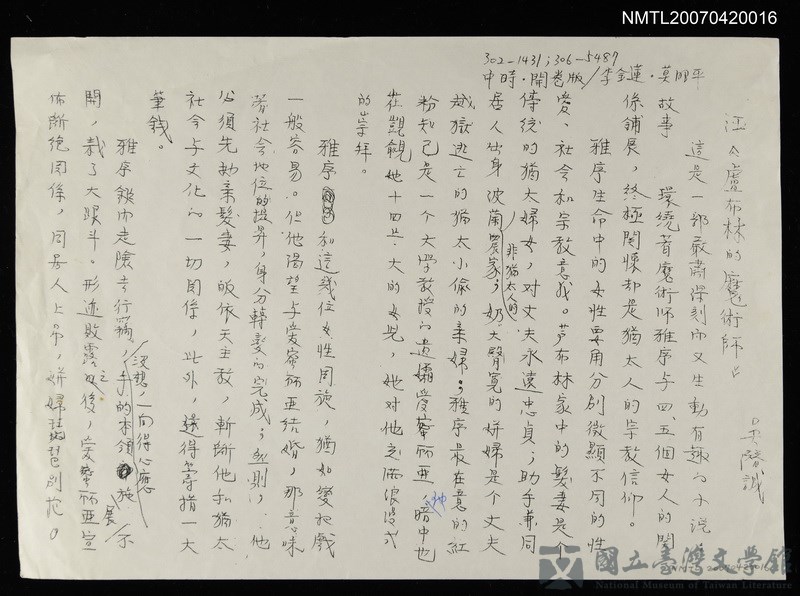 NMTL20070420016
302-1431;306-5487
中時·開卷版/李金蓮·莫昭平
江《盧布林的魔術師》
吳潛誠
這是一部嚴肅深刻而又生動有趣的小說
故事環繞著魔術師雅序与四、五個女人的関
係鋪展,終極関懷却是猶太人的宗教信仰。
雅序生命中的女性要角分別徵顯不同的性
愛、社会和宗教意義。芦布林家中的髮妻是个
傳統的猶太婦女,对丈夫永遠忠貞;助手兼同
居人出身波蘭非猶太人的農家;奶大臀寬的姘婦是个丈夫
越獄逃亡的猶太小偷的棄婦;雅序最在意的紅
粉知己是一个大學教授的遺孀愛蜜丽亞,他暗中也
在覬覦她十四歲大的女兒,她对他充滿浪漫式
的崇拜。
雅序和這幾位女性周旋,猶如變把戲
一般容易。但他渴望与愛蜜丽亞結婚,那意味
著社会地位的提昇,身分轉變的完成;然則,他
必須先拋棄髮妻,皈依天主教,斬斷他和猶太
社会与文化的一切関係,此外,還得籌措一大
筆錢。
雅序鋌而走險去行竊,沒想,一向得心應手的本領施展不
開,栽了大跟斗。形迹敗露之後,愛蜜丽亞宣
佈斷絕関係,同居人上吊,姘婦琵琶別抱。
國立臺灣文學館
National Museum of Taiwan Literature